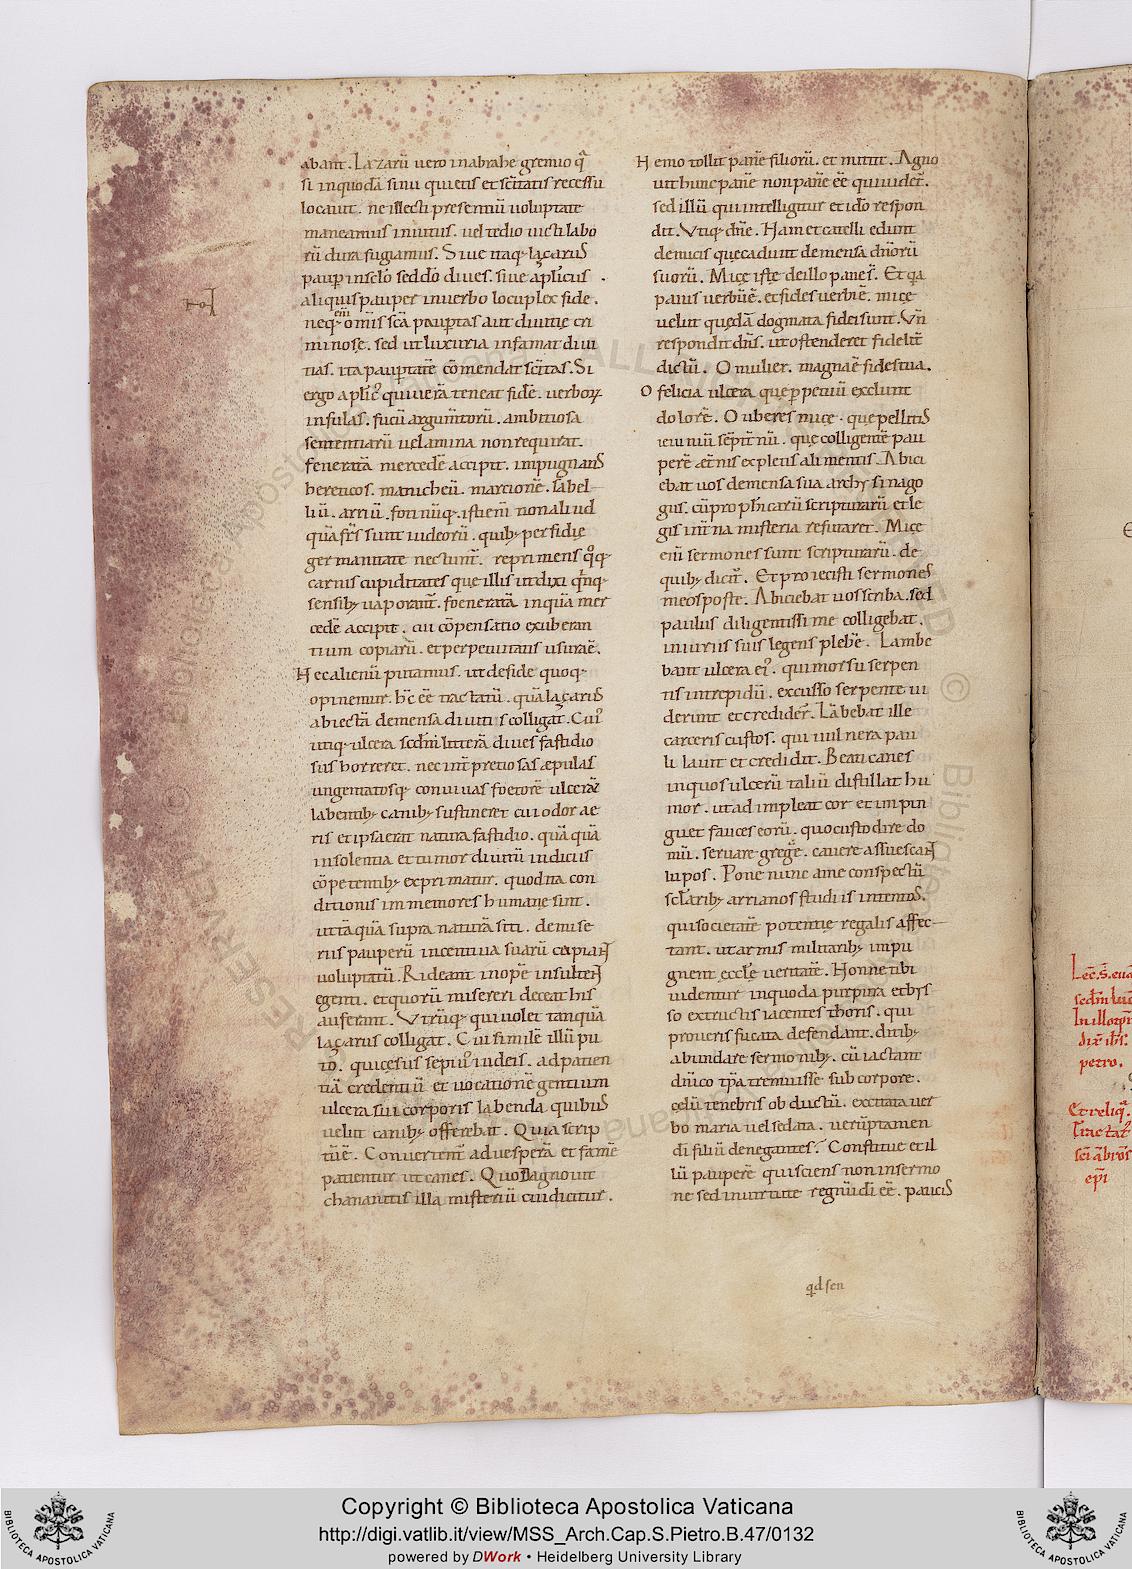 abant. Lazarū uero inabrahe gremio q̄
si inquodā sinu quietis et sc̄itatis recessu
locauit. ne illecti presentiū uoluptate
maneamus inuitiis. uel tedio uicti labo
rū dura fugiamus. Siue itaq; lazarus
paup̄ insc̄lo sed dō diues. siue aplicus .
aliquis pauper inuerbo locuplex fide.
neq; eni om̄is sc̄a paup̄tas aut diuitię cri
minosę. sed ut luxuria infamat diui
tias. ita paup̄tatē cōmendat sc̄itas. Si
ergo aplic᾽ qui uerā teneat fidē. uerboꝝ
infulas. fucū argumtorū. ambitiosa
sententiarū uelamina non requirat.
feneratā mercedē accipit. impugnans
hereticos. manicheū. marcionē. sabel
liū. arriū. fotinūq; isti eni non aliud
quā fr̄s sunt iudeorū. quib; perfidię
germanitate nectunt̄. reprimensq̄q;
carnis cupiditates que illis ut dixi q̄nq;
sensib; uaporant̄. foeneratā inquā mer
cedē accipit. cui cōpensatio exuberan
tium copiarū. et perpetuitatis usurāē.
Nec alienū putamus. ut defide quoq;
opinemur. h̄c ēē tractatū. quā lazarus
abiectā demensa diuitis colligat. Cui᾽
utiq; ulcera scdm̄ litterā diues fastidio
sus horreret. nec int̄ pretiosas æpulas
ungentatosq; conuiuas foetorē ulcerū
labentib; canib; sustineret cui odor ae
ris et ipsa erat natura fastidio. quā quā
insolentia et tumor diuitū indiciis
cōpetentib; exprimatur. quod ita con
ditionis immemores humanę sint.
ut tā quā supra naturā siti. demise
riis pauperū incentiua suarū capiant
uoluptatū. Rideant inopē insultent
egenti. et quorū misereri deceat his
auferant. Vtrūq; qui uolet tanquā
lazarus colligat. Cui similē illū pu
to. qui cęsus sepiu᾽ iudeis. ad patien
tiā credentiū et uocationē gentium
ulcera sui corporis labenda quibus
uelut canib; offerebat. Quia scrip
tūē. Conuertent̄ ad uesperā et famē
patientur ut canes. Quod agnouit
chananitis illa misteriū cui dicitur.
Nemo tollit panē filiorū. et mittit. Agno
uit hunc panē non panē ēē qui uidet̄.
sed illū qui intelligitur et ido respon
dit. Vtiq; dn̄e. Nam et catelli edunt
demicis que cadunt demensa dn̄orū
suorū. Micę iste de illo pane s̄. Et q̄a
panis uerbūē. et fides uerbi ē. micę
uelut quędā dogmata fidei sunt. Vn̄
respondit dn̄s. ut ostenderet fidelit̄
dictū. O mulier. magnaē fides tua.
O felicia ulcera que p̄petuū excl̄unt
dolorē. O uberes micę. que pellitis
ieiuniū sēpit̄nū. que colligentē pau
perē æt̄nis expletis alimentis. Abici
ebat uos demensa sua archis̄ sinago
gus. cū prophicarū scripturarū et le
gis int̄na misteria refutaret. Micę
eni sermones sunt scripturarū. de
quib; dicit̄. Et proiecisti sermones
meos poste. Abiciebat uos scriba. sed
paulus diligentissime colligebat.
iniuriis suis legens plebē. Lambe
bant ulcera ei᾽. qui morsu serpen
tis intrepidū. excusso serpente ui
derunt et credider̄. Lābebat ille
carceris custos. qui uulnera pau
li lauit et credidit. Beati canes
inquos ulcerū taliū distillat hu
mor. ut ad impleat cor et impin
guet fauces eorū. quo custodire do
mū. seruare gregē. cauere assuescant
lupos. Pone nunc ante conspectū
scl̄arib; arrianos studiis intentos.
qui societatē potentie regalis affec
tant. ut armis militarib; impu
gnent eccl̄e ueritatē. Nonne tibi
uidentur inquoda purpura et bys
so extructis iacentes thoris. qui
proueris fucata defendant. ditib;
abundare sermonib;. cū iactant
dn̄ico tp̄a tremuisse sub corpore.
cęlū tenebris obductū. excitata uer
bo maria uel sedata. uerūptamen
di filiū denegantes. Constitue et il
lū pauperē qui sciens non insermo
ne sed inuirtute regnū di ēē. paucis
q̄d sen
Lec̄. s̄. eua
sedm̄ luc
In illo tp̄r
dix̄ ih̄s.
petro.
Et reliq̄.
Tractat᾽
sc̄i ābros̄
ep̄i
Copyright © Biblioteca Apostolica Vaticana
http://digi.vatlib.it/view/MSS_Arch.Cap.S.Pietro.B.47/0132
powered by DWork • Heidelberg University Library
BIBLIOTECA APOSTOLICA VATICANA
BIBLIOTECA APOSTOLICA VATICANA